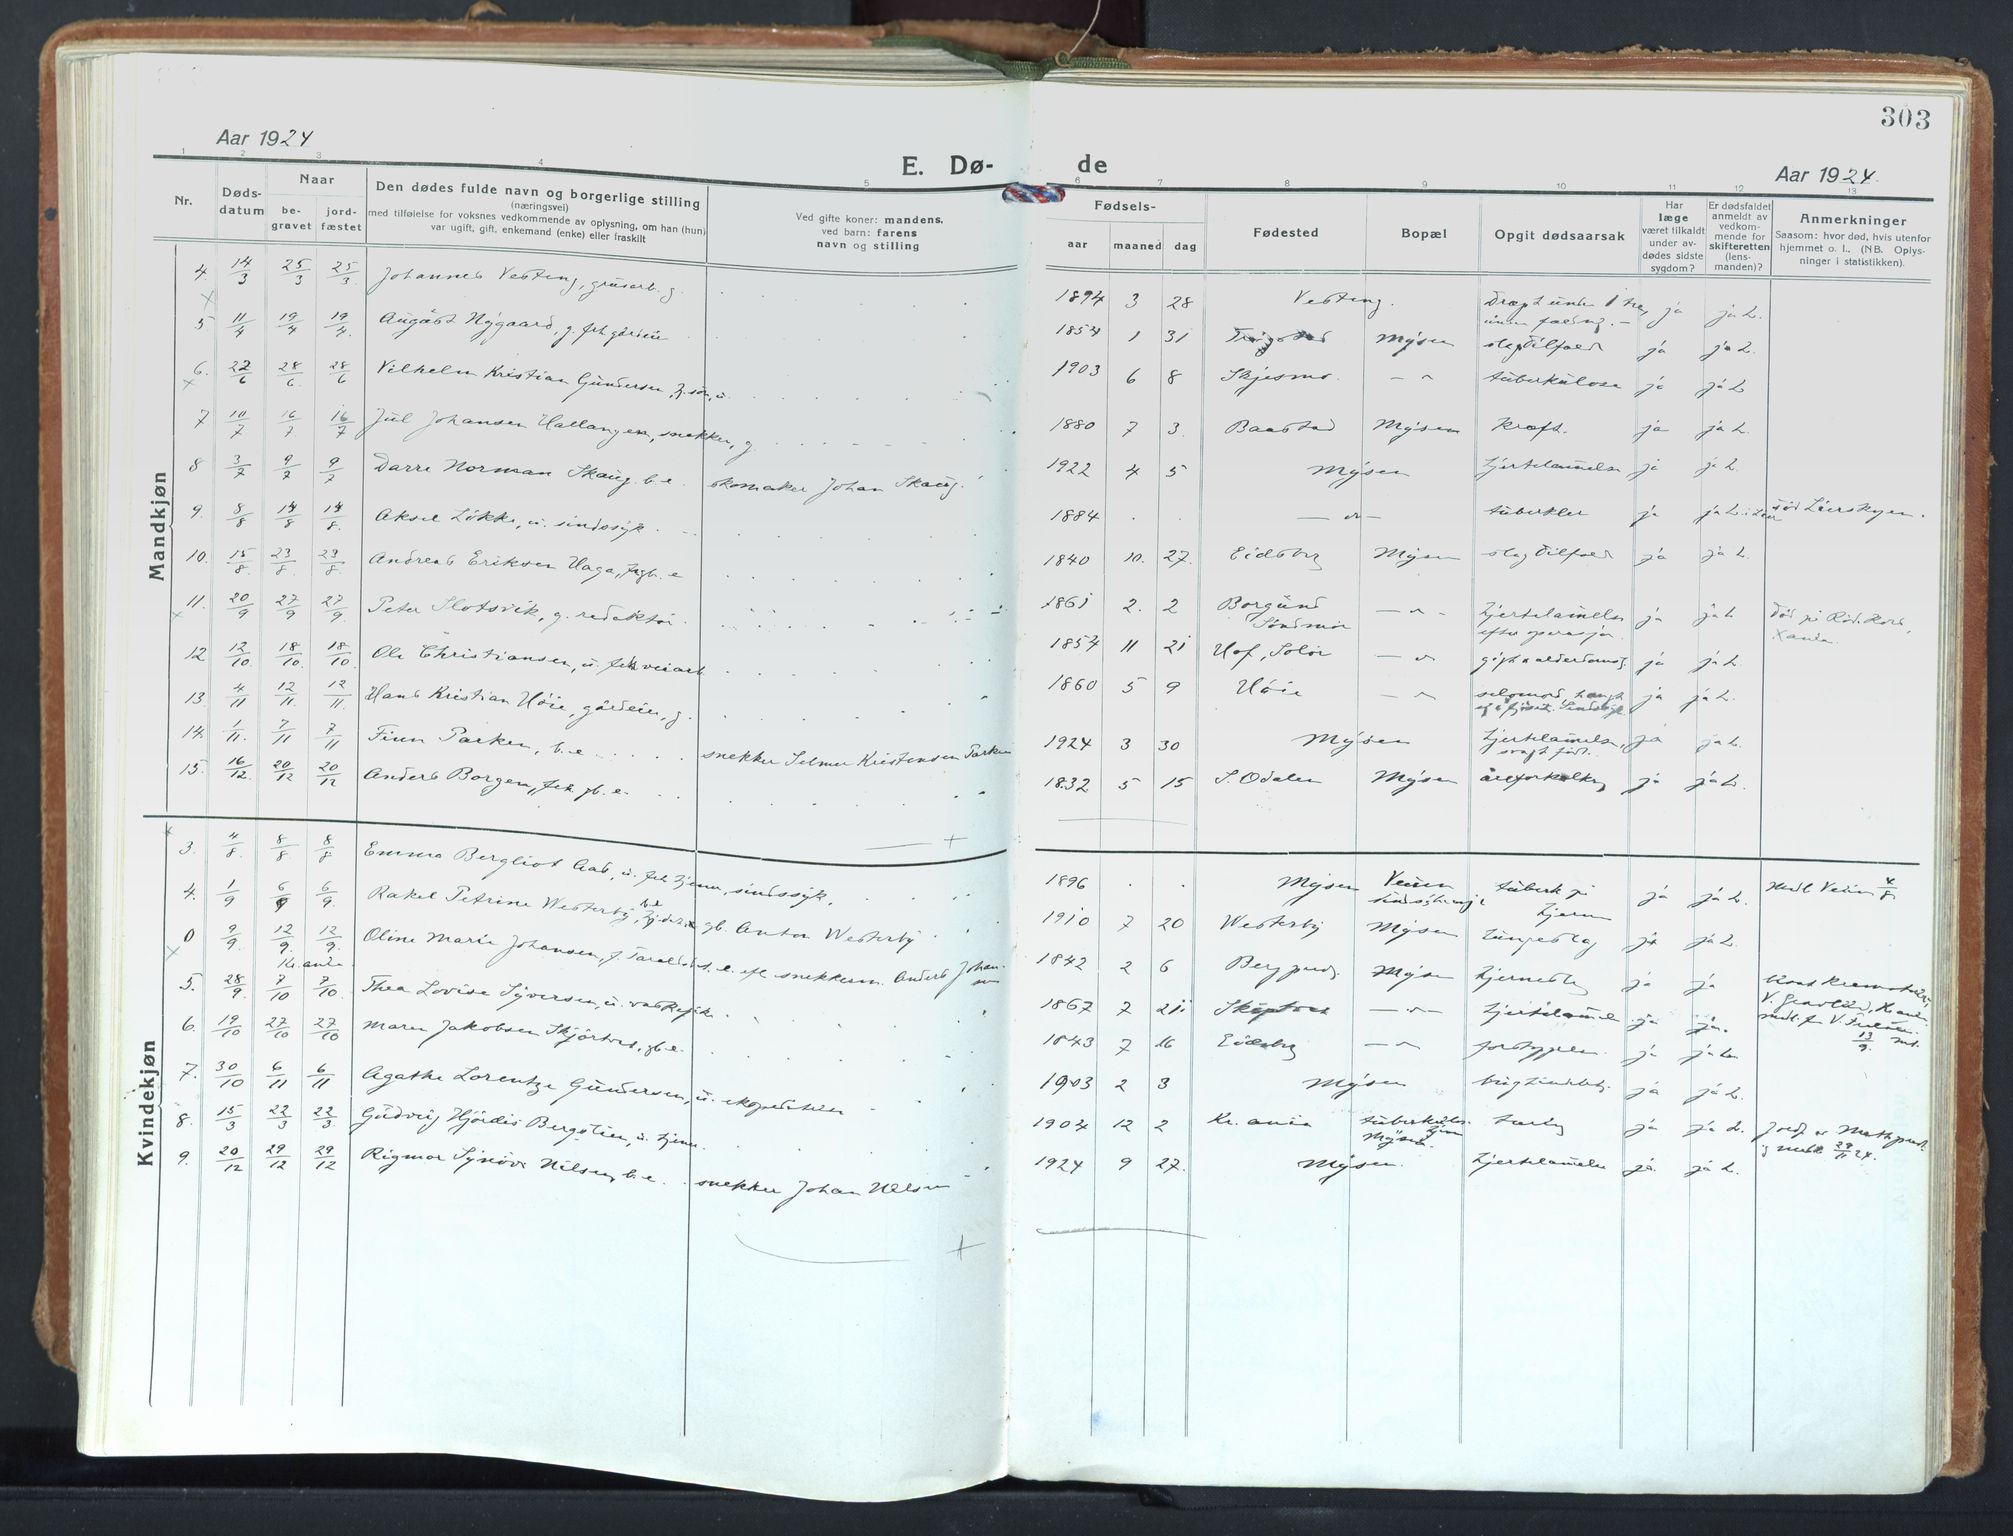 303
Aar 1924
E. Dø-
de
Aar 1924.
1 2 3 4 5 6 7 8 9 10 11 12 13
Nr.
Døds-
datum
Naar
be-
gravet
jord-
fæstet
Den dødes fulde navn og borgerlige stilling
(næringsvei)
med tilføielse for voksnes vedkommende av oplysning, om han (hun)
var ugift, gift, enkemand (enke) eller fraskilt
Ved gifte koner: mandens,
ved barn: farens
navn og stilling
Fødsels-
aar maaned dag
Fødested
Bopæl
Opgit dødsaarsak
Har
læge
været tilkaldt
under av-
dødes sidste
sygdom?
Er dødsfaldet
anmeldt av
vedkom-
mende for
skifteretten
(lens-
manden)?
Anmerkninger
Saasom: hvor død, hvis utenfor
hjemmet o. l., (NB. Oplys-
ninger i statistikken).
Mandkjøn
4. 14/3 25/3 25/3. Johannes Vesteng, grusarb. g. 1894 3 28 Vesteng. ja ja L.
5 11/4 19/4 19/4. August Nygaard, g. fhv. gårdeier 1854 1 31 Mysen slagtilfæld ja ja L.
6. 22/6 28/6. 28/6 Vilhelm Kristian Gundersen, u. 1903 6 8 Skjesmo. tuberkulose ja ja L
7 10/7 16/7. 16/7 Jul Johansen Hallangen, snekker, g. 1880 7 3. Baastad Mysen kræft. ja ja L.
8 3/7 9/7 9/7 Darre Norman Skaug. b. e. skomaker Johan Skaug. 1922 4 5 Mysen hjertelammelse ja ja L.
9. 8/8 14/8 14/8. Aksel Løkke, u. sindssyk. 1884 tuberkler ja ja L.
10. 15/8. 23/8. 23/8. Andreas Eriksen Haga, e 1840 10. 27. Eidsberg Mysen slagtilfæld ja ja L.
11. 20/9 27/9 27/9. Peter Slotsvik, g. redaktør 1861 2. 2 Borgund
Søndmør hjertelammelse
efter operasjon. ja ja L død på Rød. Kors,
Xania.
12 12/10. 18/10. 18/10. Ole Christiansen, u. fhv. veiarb 1854 11 21 Hof, Solør gigt & alderdomss. ja ja L.
13. 4/11 12/11. 12/11. Hans Kristian Høie, gårdeier, g. 1860 5 9 Høie selvmord, ja ja L.
14. 1/11. 7/11 7/11 Finn Parken, b. e. snekker Selmer Kristensen Parken 1924 3 30 Mysen hjertelammelse,
svagt født. ja ja L.
15. 16/12. 20/12 20/12 Anders Borgen, fhv. gb. e. 1832 5 15 S. Odalen Mysen åreforkalkng ja ja L.
Kvindekjøn
3. 4/8. 8/8 8/8 Emma Bergliot Aas, u. sindssyk. 1896 Mysen tuberk på
hjernen ja ja L. 4/8
4. 1/9 6/9 6/9. Rakel Petrine Westerby, gb. Anton Westerby 1910 7 20 Westerby Mysen ja ja L.
0 9/9. 12/9. 12/9. Oline Marie Johansen, e. eft. snekkerm. Anders Johan-
sen 1842 2 6 Mysen hjerneslag ja ja
Kr.ania
5. 28/9. 7/10 7/10. Thea Lovise Syversen, u. 1867 7 21 hjertelammelse ja ja.
13/9.
6. 19/10 27/10 27/10 Maren Jakobsen Skjørtvet, gb. e. 1843 7 16 Eidsberg ja ja L.
7. 30/10 6/11 6/11 Agathe Lorentze Gundersen, u. ekspeditrise 1903 2 3 Mysen ja ja L.
8. 15/3 22/3 22/3. Gudveig Hjørdis Bergstien, u. hjem. 1904 12 2 Kr. ania Mysen. ja ja L. 29/11 24.
9. 20/12 29/12 29/12 Rigmor Synøve Nilsen, b. e. snekker Johan Nilsen 1924 9 27. Mysen. hjertelammelse ja. ja L.